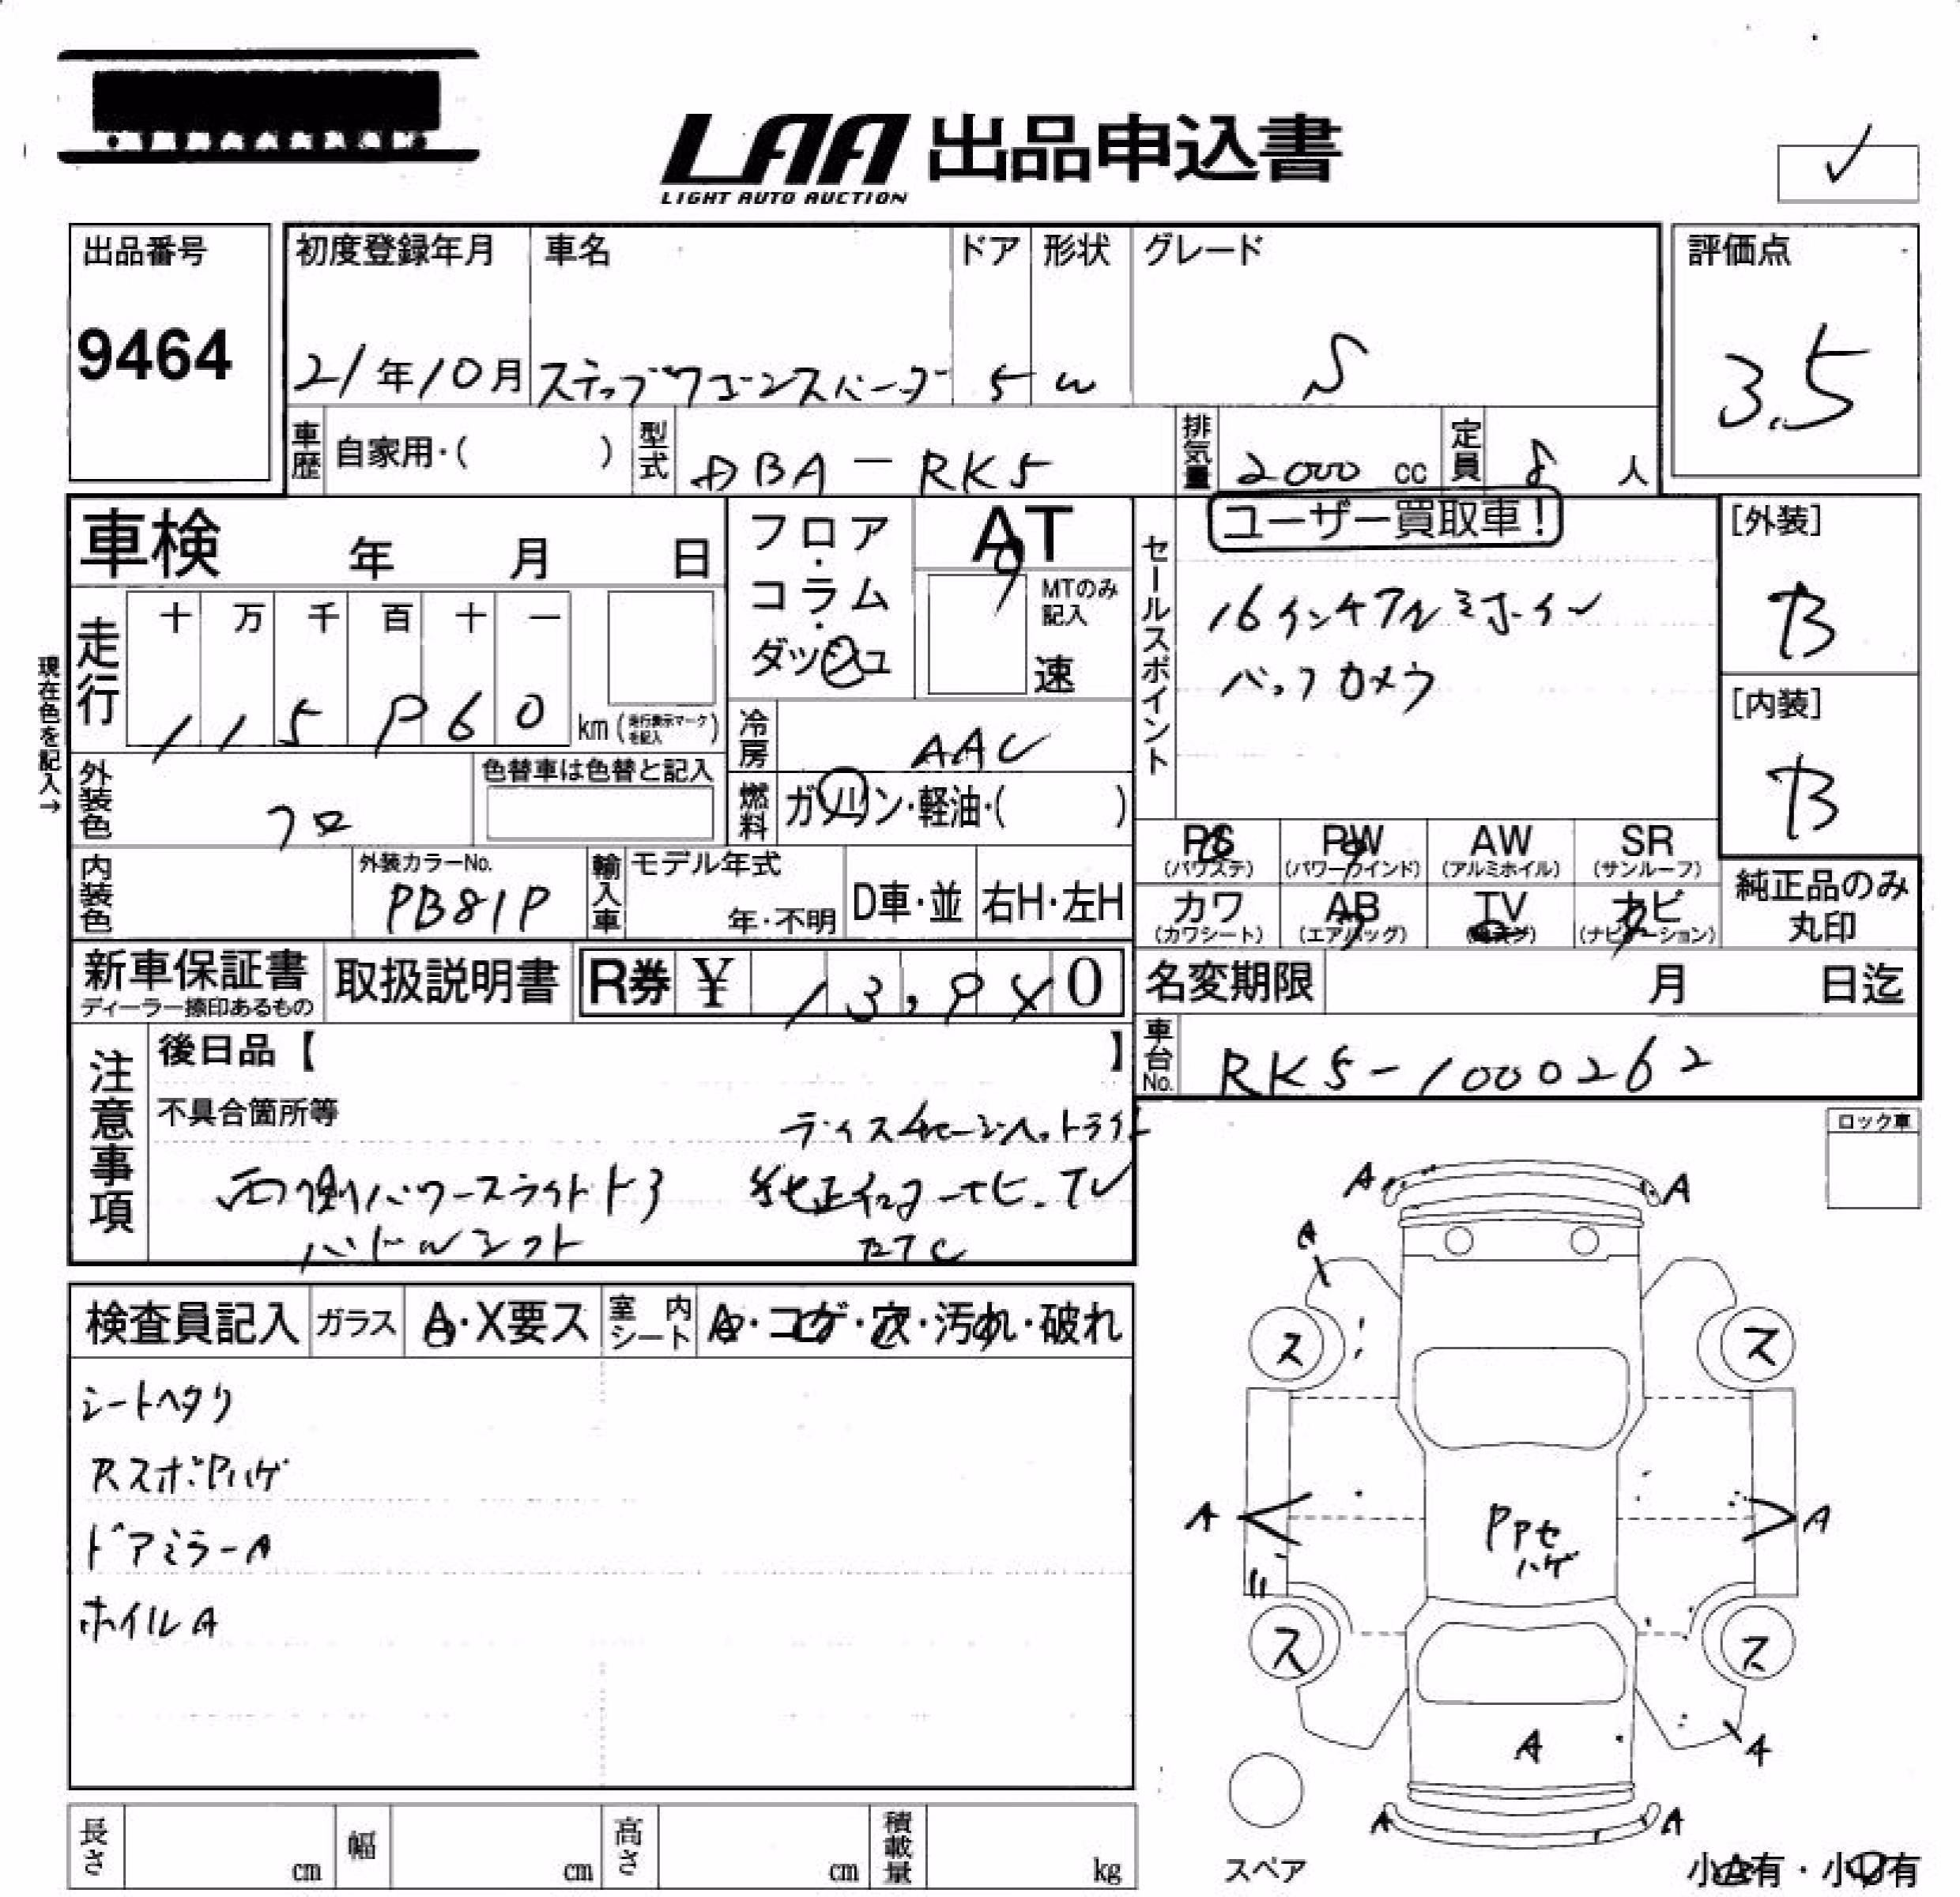 LAA 出品申込書
LIGHT AUTO AUCTION
出品番号
9464
初度登録年月
21年10月
車名
ステップワゴンスパーダ
ドア
5
形状
W
グレード
S
評価点
3.5
車歴
自家用・( )
型式
DBA-RK5
排気量
2000 cc
定員
8 人
車検 年 月 日
フロア・コラム・ダッシュ
AT
MTのみ記入
速
セールスポイント
ユーザー買取車!
16インチアルミホイル
バックカメラ
[外装]
B
[内装]
B
現在色を記入→
走行
十 万 千 百 十 一
115960
km(走行表示マークを記入)
冷房
AAC
外装色
クロ
色替車は色替と記入
燃料
ガソリン・軽油・( )
内装色
外装カラーNo.
PB81P
輸入車
モデル年式
年・不明
D車・並
右H・左H
PS
(パワステ)
PW
(パワーウインド)
AW
(アルミホイル)
SR
(サンルーフ)
カワ
(カワシート)
AB
(エアバッグ)
TV
ナビ
(ナビゲーション)
純正品のみ
丸印
新車保証書
ディーラー捺印あるもの
取扱説明書
R券 ¥ 13,940
名変期限 月 日迄
車台No.
RK5-1000262
注意事項
後日品【 】
不具合箇所等
ディスチャージヘッドライト
両側パワースライドドア
純正インターナビ.TV
ハンドルシフト
ETC
ロック車
検査員記入
ガラス
A・X要ス
室内シート
A・コゲ・穴・汚れ・破れ
シートヘタリ
RスポイPハゲ
ドアミラーA
ホイルA
A A
A
ス ス
A A
PアセハゲP
ス ス
A A
A A
長さ cm
幅 cm
高さ cm
積載量 kg
スペア
小A有・小U有